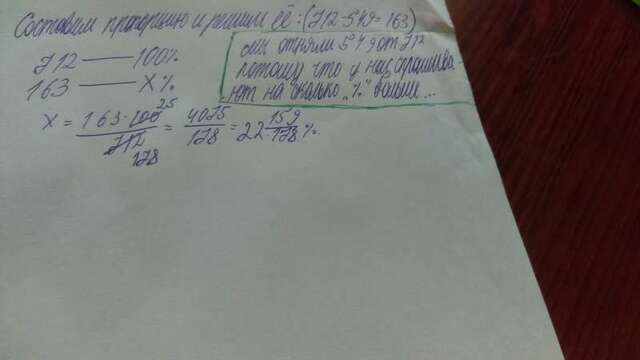 Составим пропорцию и решим её: (712-549=163)
712 — 100%
163 — X%
мы отняли 549 от 712
потому что у нас спрашива-
ют на сколько "%" больше...
X = 163·100 25 / 712 178 = 4075/178 = 22 159/178 %.